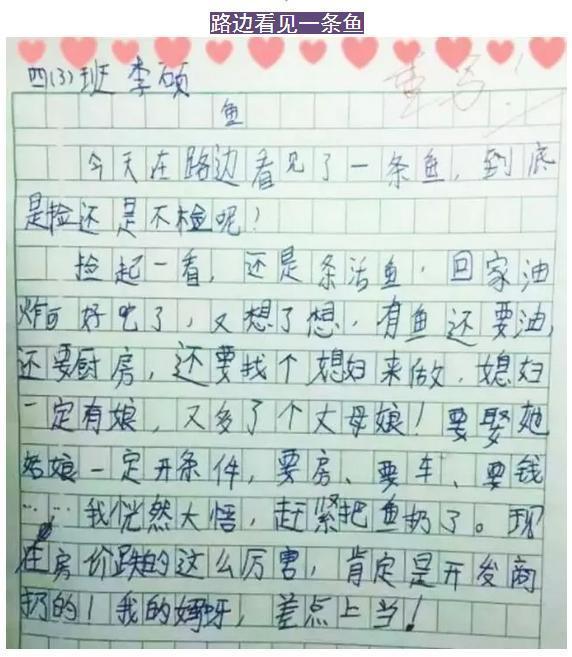 路边看见一条鱼
四(3)班 李硕
重写!
鱼
今天在路边看见了一条鱼，到底
是捡还是不检呢？
捡起一看，还是条活鱼，回家油
炸可好吃了，又想了想，有鱼还要油，
还要厨房，还要找个媳妇来做，媳妇
一定有娘，又多了个丈母娘！要娶她
姑娘一定开条件，要房、要车、要钱
……我恍然大悟，赶紧把鱼扔了。现
在房价跌的这么厉害，肯定是开发商
扔的！我的妈呀，差点上当！